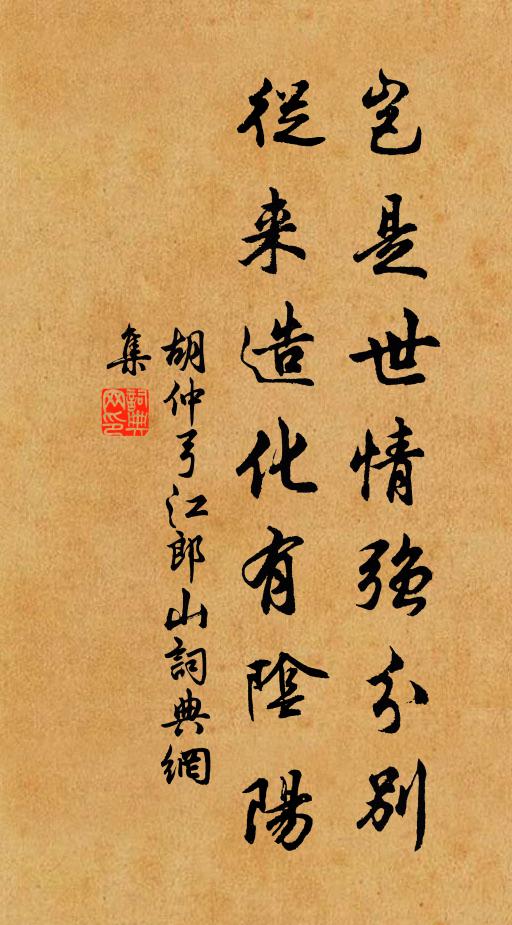 豈是世情強分別
從来造化有陰陽
胡仲弓江郎山詞典網
集
詞典网印